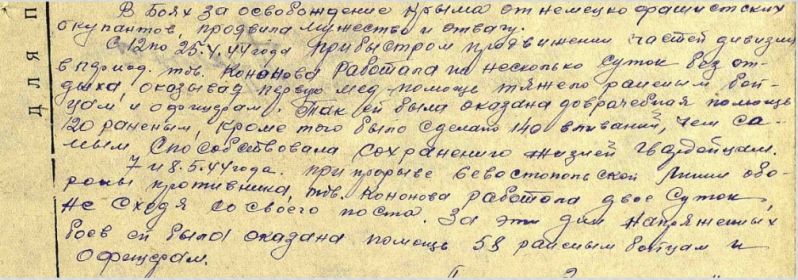 ДЛЯ П
В боях за освобождение Крыма от немецко фашистских
окупантов, продвила мужество и отвагу.
С 12 по 25.4.44 года при быстром продвижении частей дивизии
в период. тов. Кононова работала по несколько суток без от-
дыха, оказывая первую мед помощь тяжело раненым бой-
цам и офицерам. Так ей была оказана доврачебная помощь
120 раненым, кроме того было сделано 140 вливаний, чем са-
мым способствовала сохранению жизней гвардейцам.
7 и 8.5.44 года. при прорыве севостопольской линии обо-
роны противника, тов. Кононова работала двое суток,
не сходя со своего поста. За эти дни напряженных
боев ей была оказана помощь 58 раненым бойцам и
офицерам.